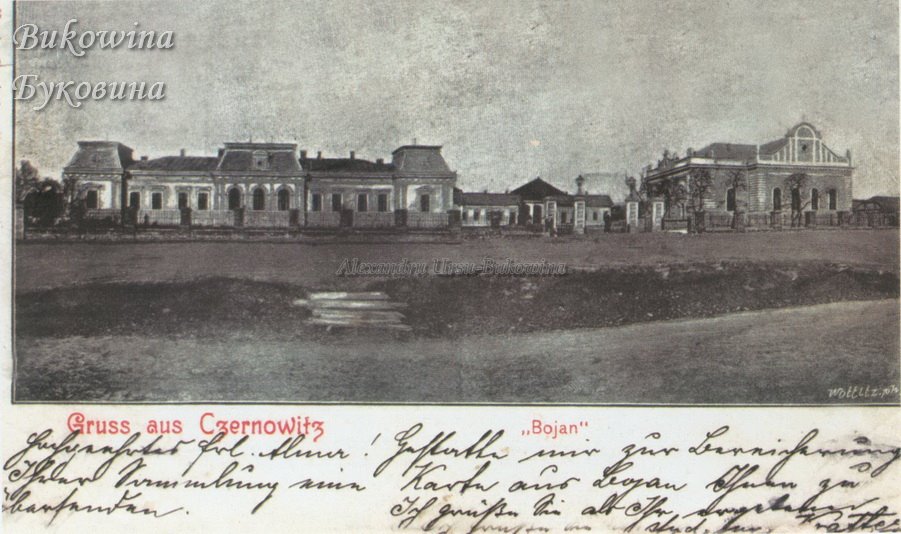 Bukowina
Буковина
Alexandru Ursu-Bukowina
Gruss aus Czernowitz
„Bojan“
Hochgeehrtes Frl. Alma! Gestatte mir zur Bereicherung
Ihrer Sammlung eine Karte aus Bojan Ihnen zu
übersenden. Ich grüße Sie als Ihr ergebener